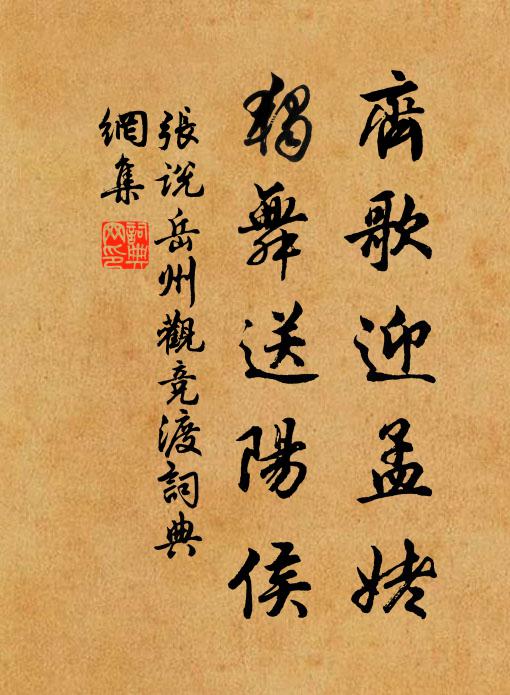 齊歌迎孟姥
獨舞送陽侯
張説岳州觀竞渡詞典
網集
詞典
网印